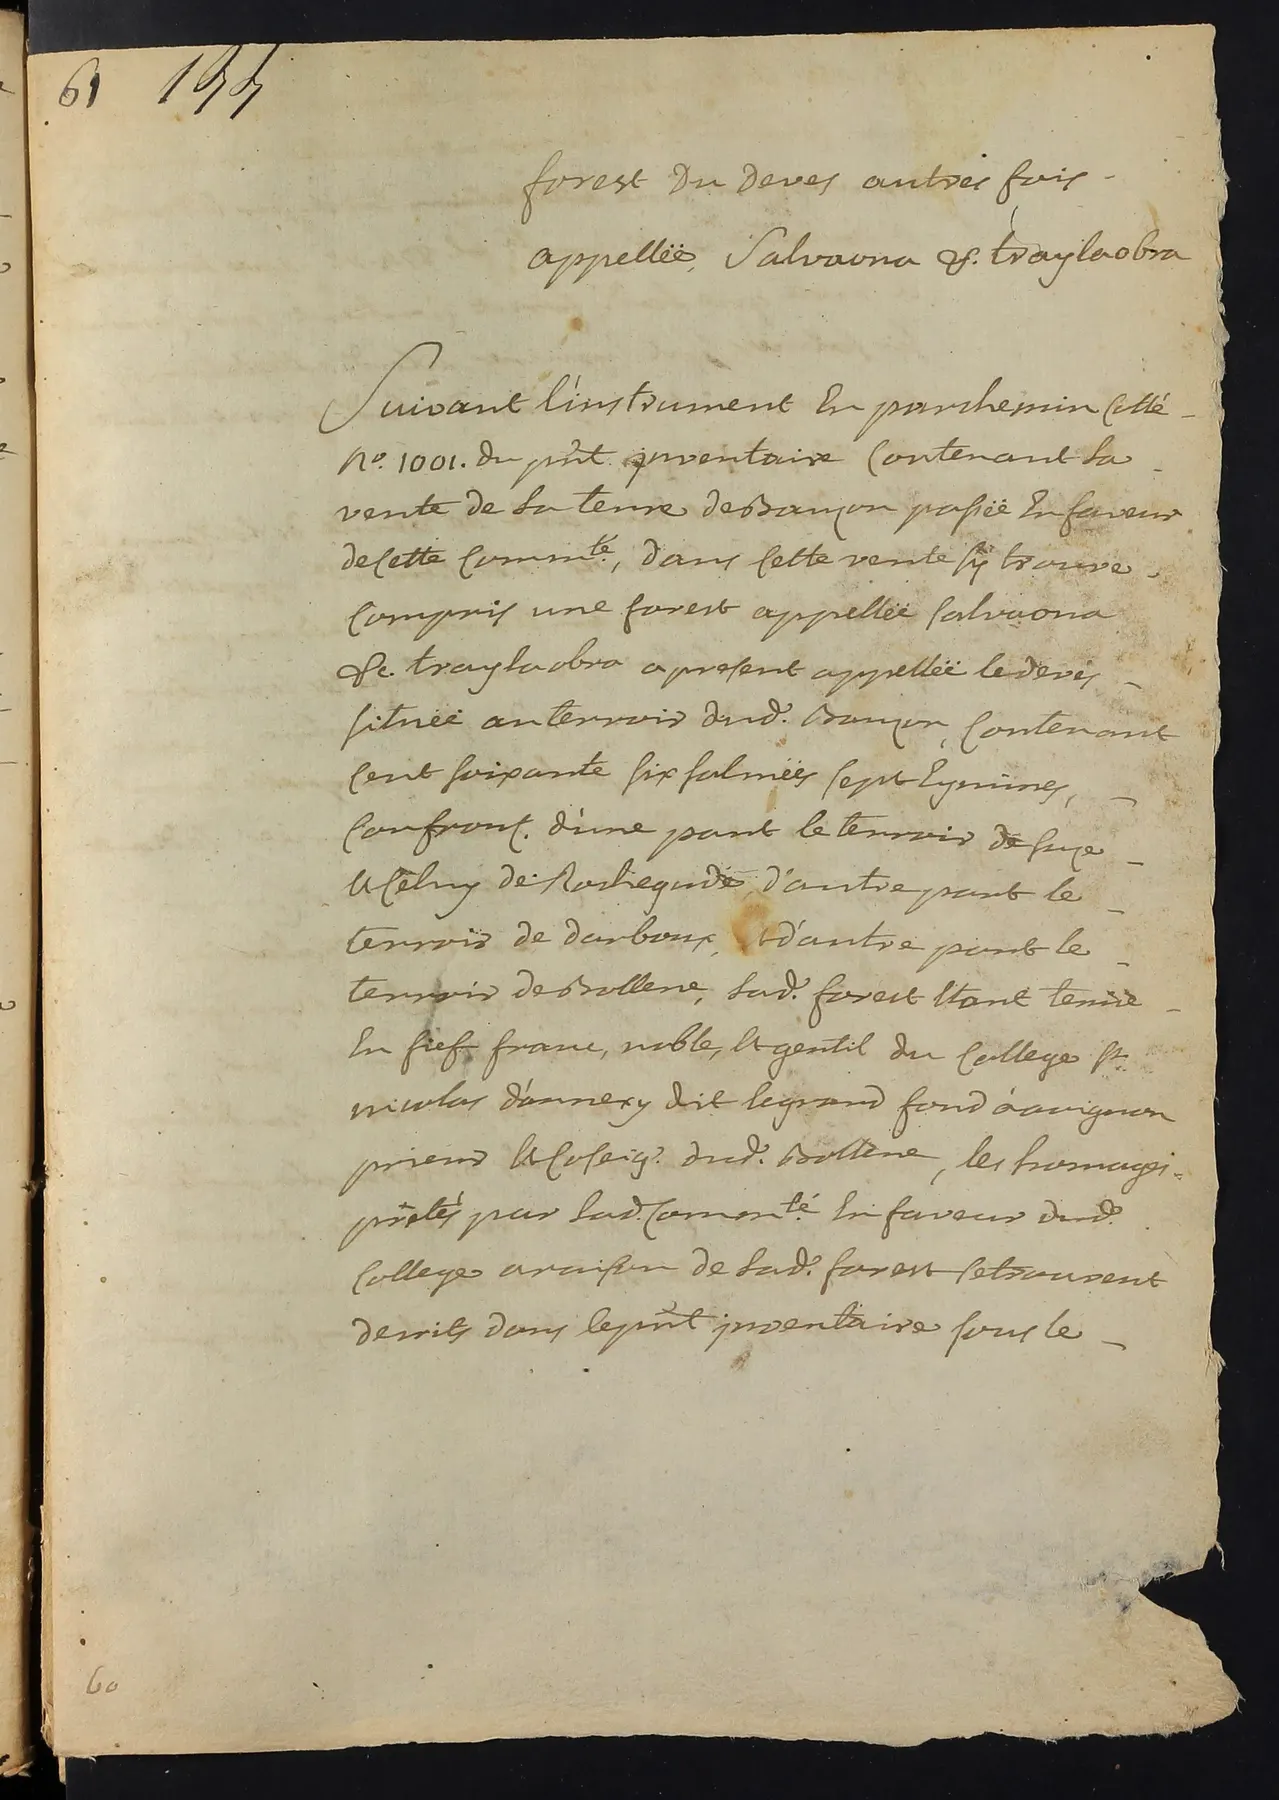 61 155
forest du deves autres fois -
appelleë, Salvaona &. traylaobra
Suivant l'instrument En parchemin Cotté -
No. 1001. du pñt inventaire Contenant la -
vente de la terre de Bauzon passeë En faveur
de Cette Commté, dans Cette vente sÿ trouve -
Compris une forest appelleë Salvaona
&c. traylaobra apresent appelleë le deves -
situeë au terroir dud. Bauzon, Contenant
Cent soixante six salmeës sept Eymines, -
Confront. d'une part le terroir de Suze -
Et Celuy de Rochegude, d'autre part le -
terroir de darboux, Et d'autre part le -
terroir de Bollene, lad. forest Etant tenüe -
En fief franc, noble, Et gentil du College St
nicolas d'annexy dit legrand fond á avignon
prieur Et Coseigr. dud. Bollene, les homages -
prètés par lad. Commté. En faveur dud.
College araison de lad. forest se trouvent
decrits dans le pñt inventaire sous le -
60